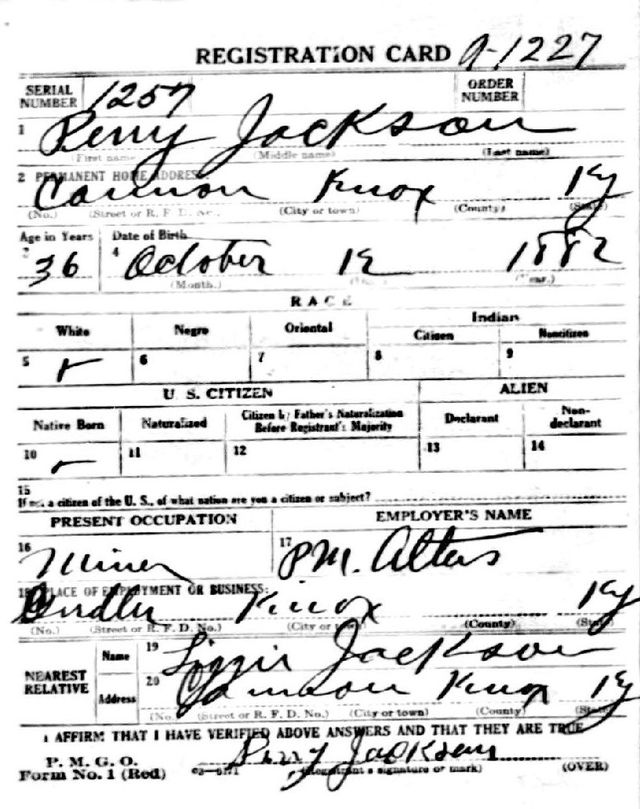 REGISTRATION CARD A-1227
SERIAL NUMBER 1257 ORDER NUMBER
1 Perry Jackson
(First name) (Middle name) (Last name)
2 PERMANENT HOME ADDRESS:
Cannon Knox Ky
(No.) (Street or R. F. D. No.) (City or town) (County) (State)
Age in Years Date of Birth
3 36 4 October 12 1882
(Month.) (Year.)
RACE
White Negro Oriental Indian
Citizen Noncitizen
5 6 7 8 9
U. S. CITIZEN ALIEN
Native Born Naturalized Citizen by Father's Naturalization Before Registrant's Majority Declarant Non-declarant
10 11 12 13 14
15
If not a citizen of the U. S., of what nation are you a citizen or subject?
PRESENT OCCUPATION EMPLOYER'S NAME
16 Miner 17 P.M.
18 PLACE OF EMPLOYMENT OR BUSINESS:
Knox Ky
(No.) (Street or R. F. D. No.) (City or town) (County) (State)
NEAREST RELATIVE Name 19 Lizzie Jackson
Address 20 Cannon Knox Ky
(No.) (Street or R. F. D. No.) (City or town) (County) (State)
I AFFIRM THAT I HAVE VERIFIED ABOVE ANSWERS AND THAT THEY ARE TRUE
P. M. G. O.
Form No. 1 (Red) Perry Jackson
(Registrant's signature or mark) (OVER)